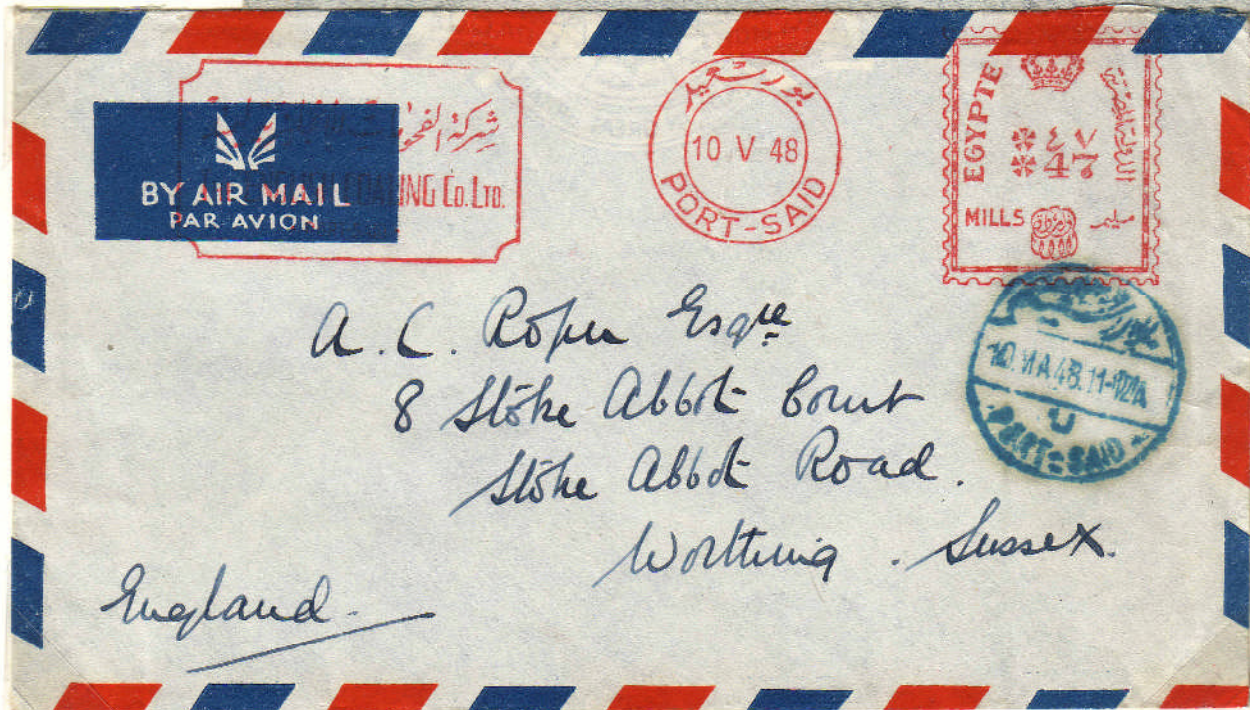 شركة الفحو
BY AIR MAIL
PAR AVION
COALING Co. LTD.
بورسعيد
10 V 48
PORT-SAID
EGYPTE
٤٧
47
MILLS
مليم
بورسعيد
10.MA.48.11-12A
PORT-SAID
A. C. Roper Esqre
8 Stoke Abbot Court
Stoke Abbot Road.
Worthing. Sussex.
England